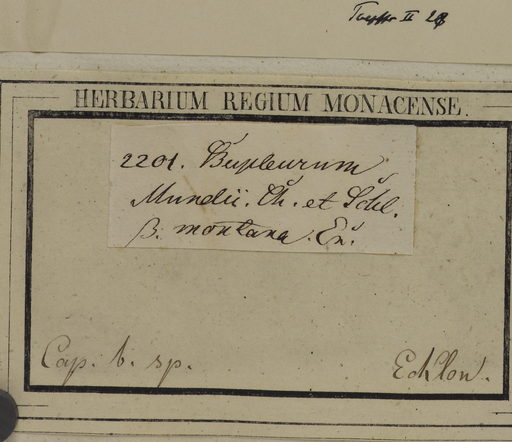 II
HERBARIUM REGIUM MONACENSE.
2201. Bupleurum
Mundii. Ch. et Schl.
β. montana. En.
Cap. b. sp.
Ecklon.